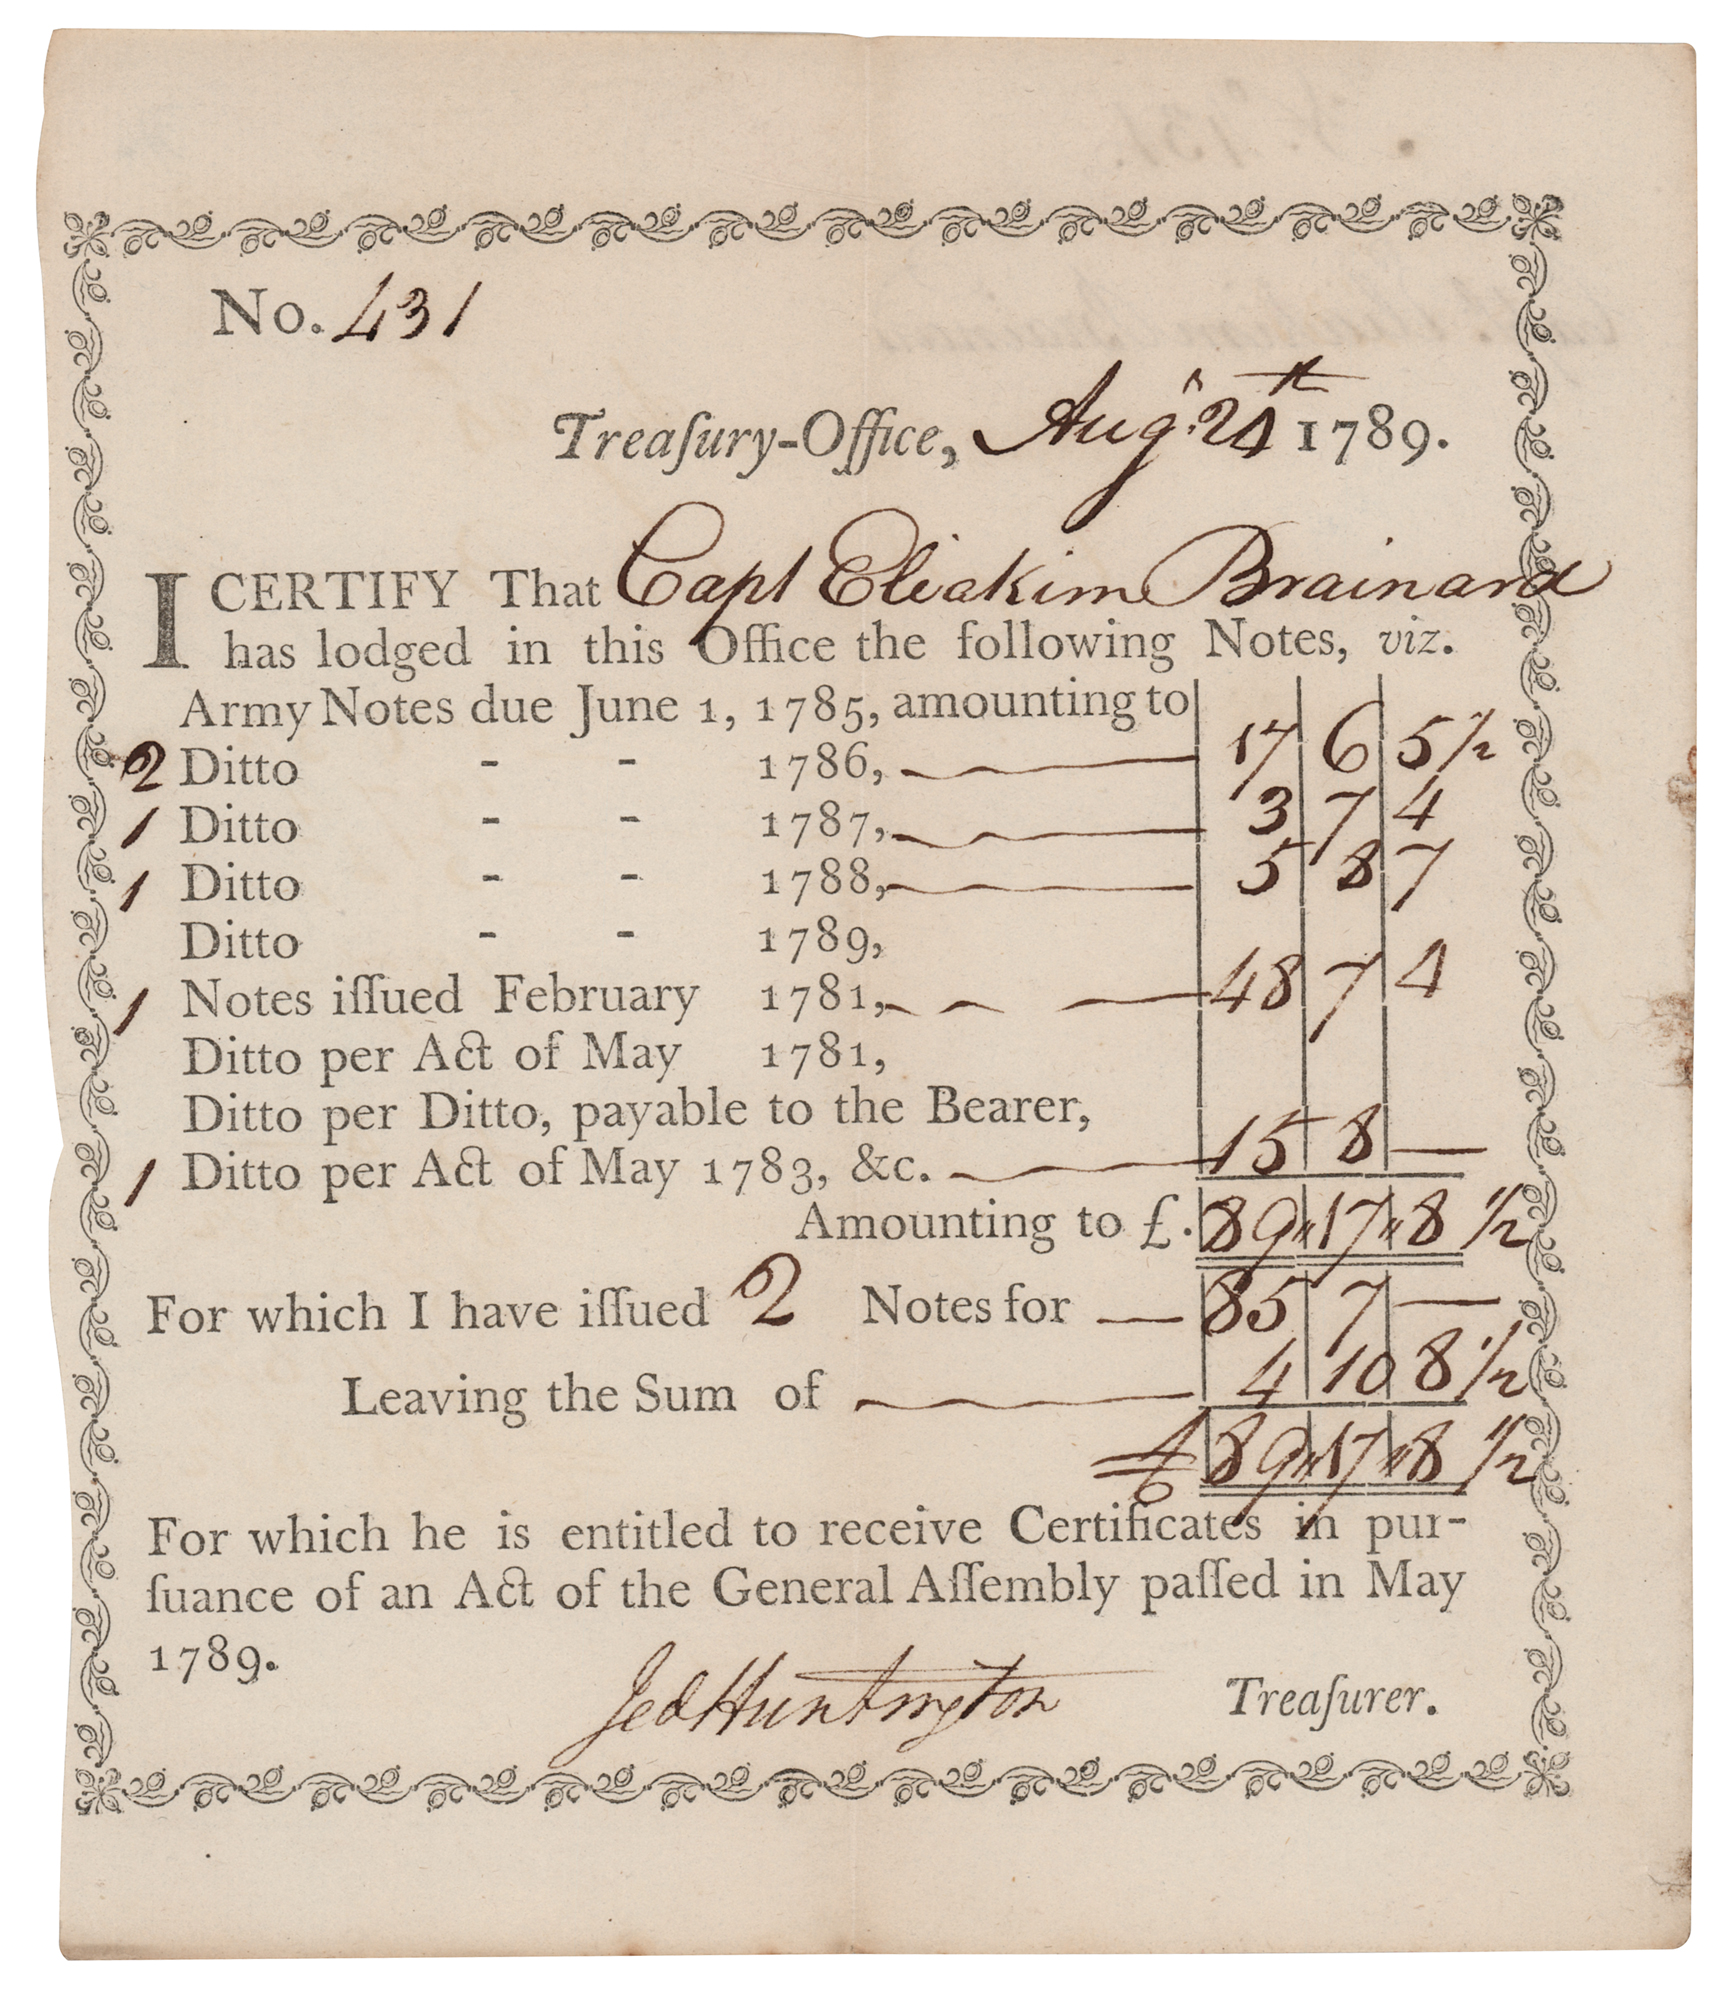 No. 431
Treaſury-Office, Augt. 24th 1789.
I CERTIFY That Capt Eliakim Brainard
has lodged in this Office the following Notes, viz.
Army Notes due June 1, 1785, amounting to
2 Ditto - - 1786, 17 6 5 1/2
1 Ditto - - 1787, 3 7 4
1 Ditto - - 1788, 5 8 7
Ditto - - 1789,
1 Notes iſſued February 1781, 48 7 4
Ditto per Act of May 1781,
Ditto per Ditto, payable to the Bearer,
1 Ditto per Act of May 1783, &c. 15 8 —
Amounting to £. 89 " 17 " 8 1/2
For which I have iſſued 2 Notes for — 85 7 —
Leaving the Sum of 4 10 8 1/2
£ 89 " 17 " 8 1/2
For which he is entitled to receive Certificates in pur-
ſuance of an Act of the General Aſſembly paſſed in May
1789.
Jed Huntington Treaſurer.